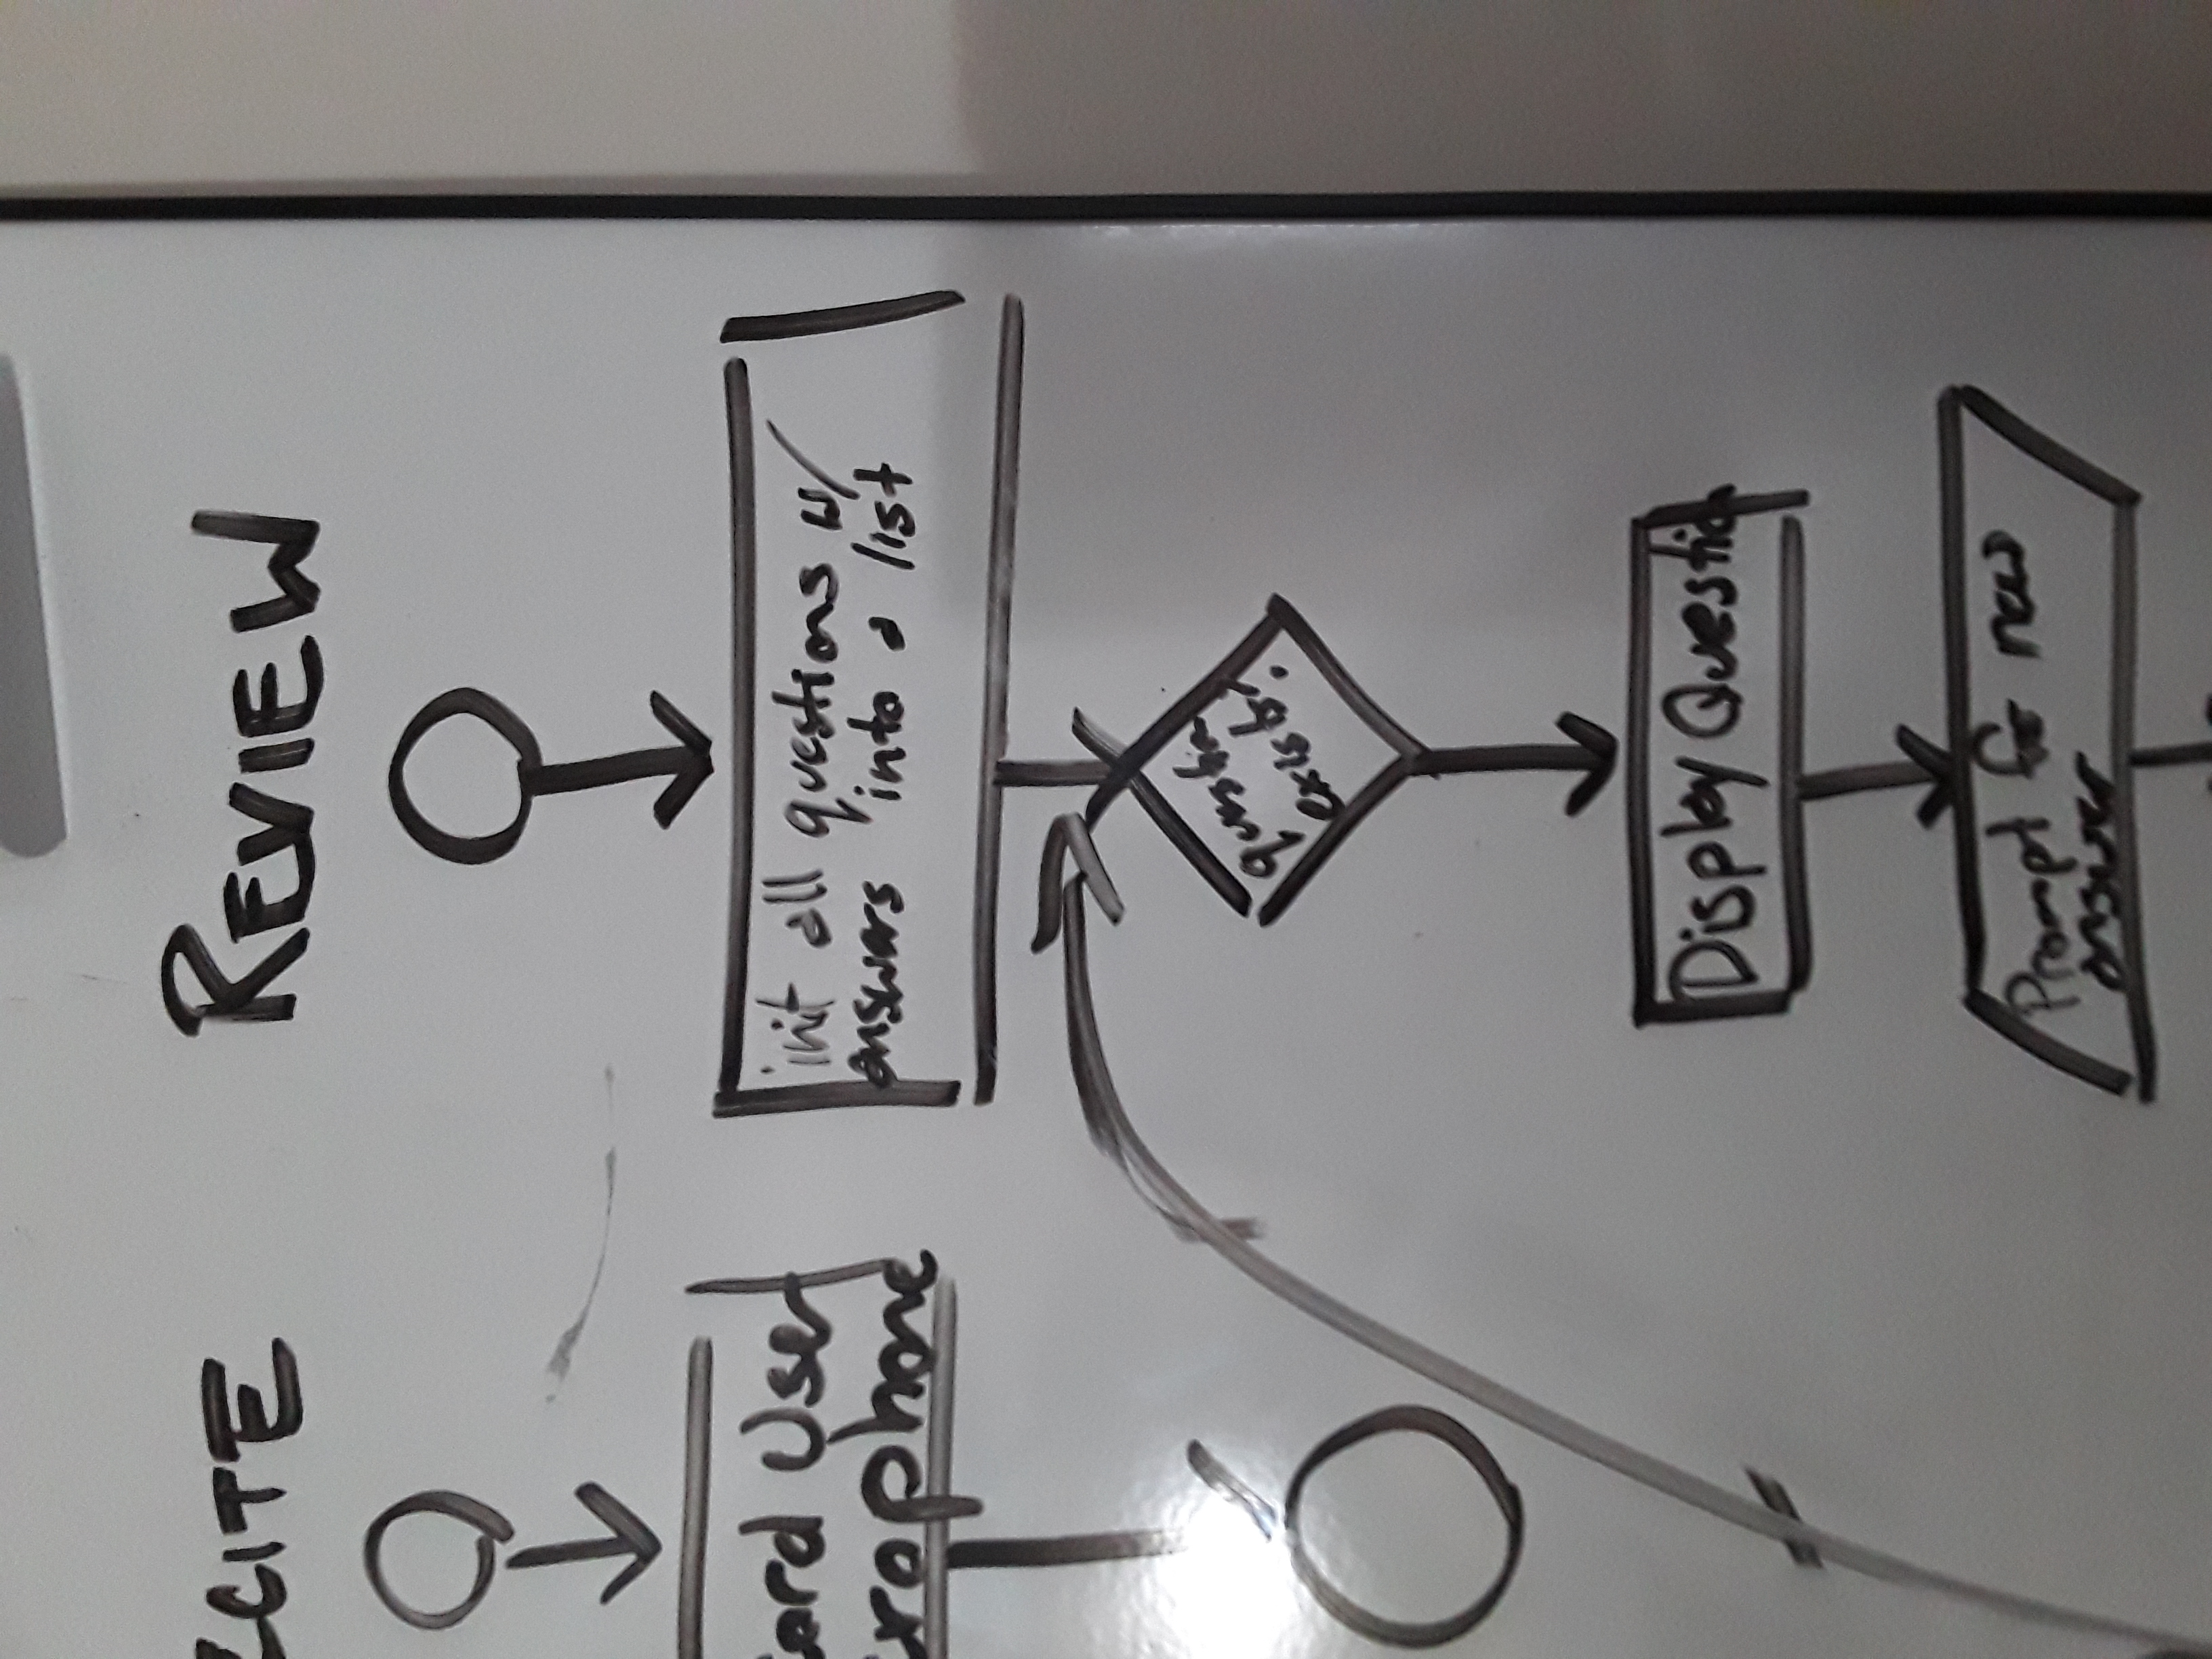 ECITE
REVIEW
cord User
crophone
init all questions w/
answers into a list
question
exists?
Display Question
Prompt for new
answer